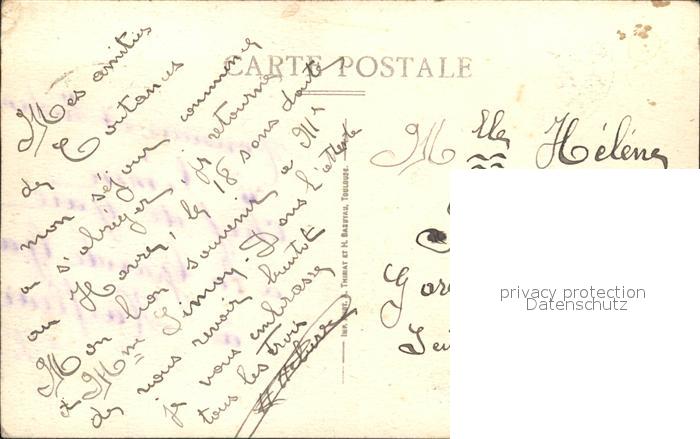 CARTE POSTALE
Mes amitiés
de Coutances
mon séjour commence
à s'abréger, je retourne
au Havre, le 18 sans doute
Mon bon souvenir à Mr
et Mme Simon. Dans l'attente
de nous revoir bientôt
je vous embrasse
tous les trois
IMP. PHOT. A. THIRIAT ET H. BASUYAU, TOULOUSE.
Mlle Hélène
privacy protection
Datenschutz